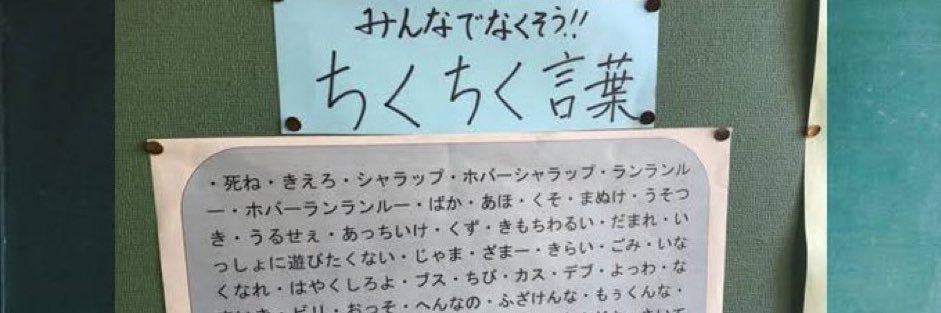 みんなでなくそう!!
ちくちく言葉
・死ね・きえろ・シャラップ・ホバーシャラップ・ランランル
ー・ホバーランランルー・ばか・あほ・くそ・まぬけ・うそつ
き・うるせぇ・あっちいけ・くず・きもちわるい・だまれ・い
っしょに遊びたくない・じゃま・ざまー・きらい・ごみ・いな
くなれ・はやくしろよ・ブス・ちび・カス・デブ・よっわ・な
・ビリ・おっそ・へんなの・ふざけんな・もぅくんな・